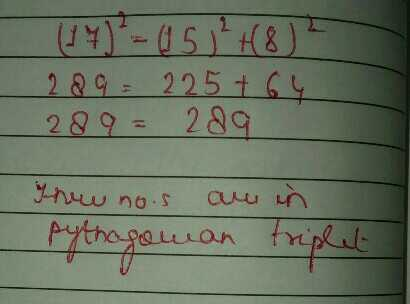 (17)² = (15)² + (8)²
289 = 225 + 64
289 = 289
These no.s are in
pythagorean triplet